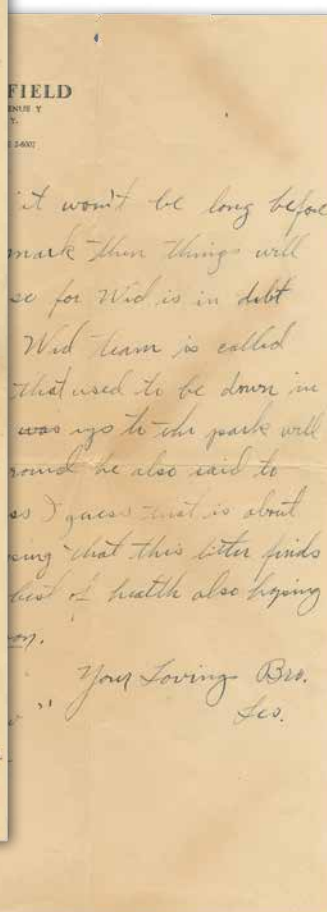 FIELD
ENUE Y
Y.
2-6002
it won't be long before
mark then things will
se for Wid is in debt
Wid team is called
that used to be down in
was up to the park will
round he also said to
as I guess that is about
sing that this letter finds
best of health also hoping
on.
Your Loving Bro.
Leo.
"